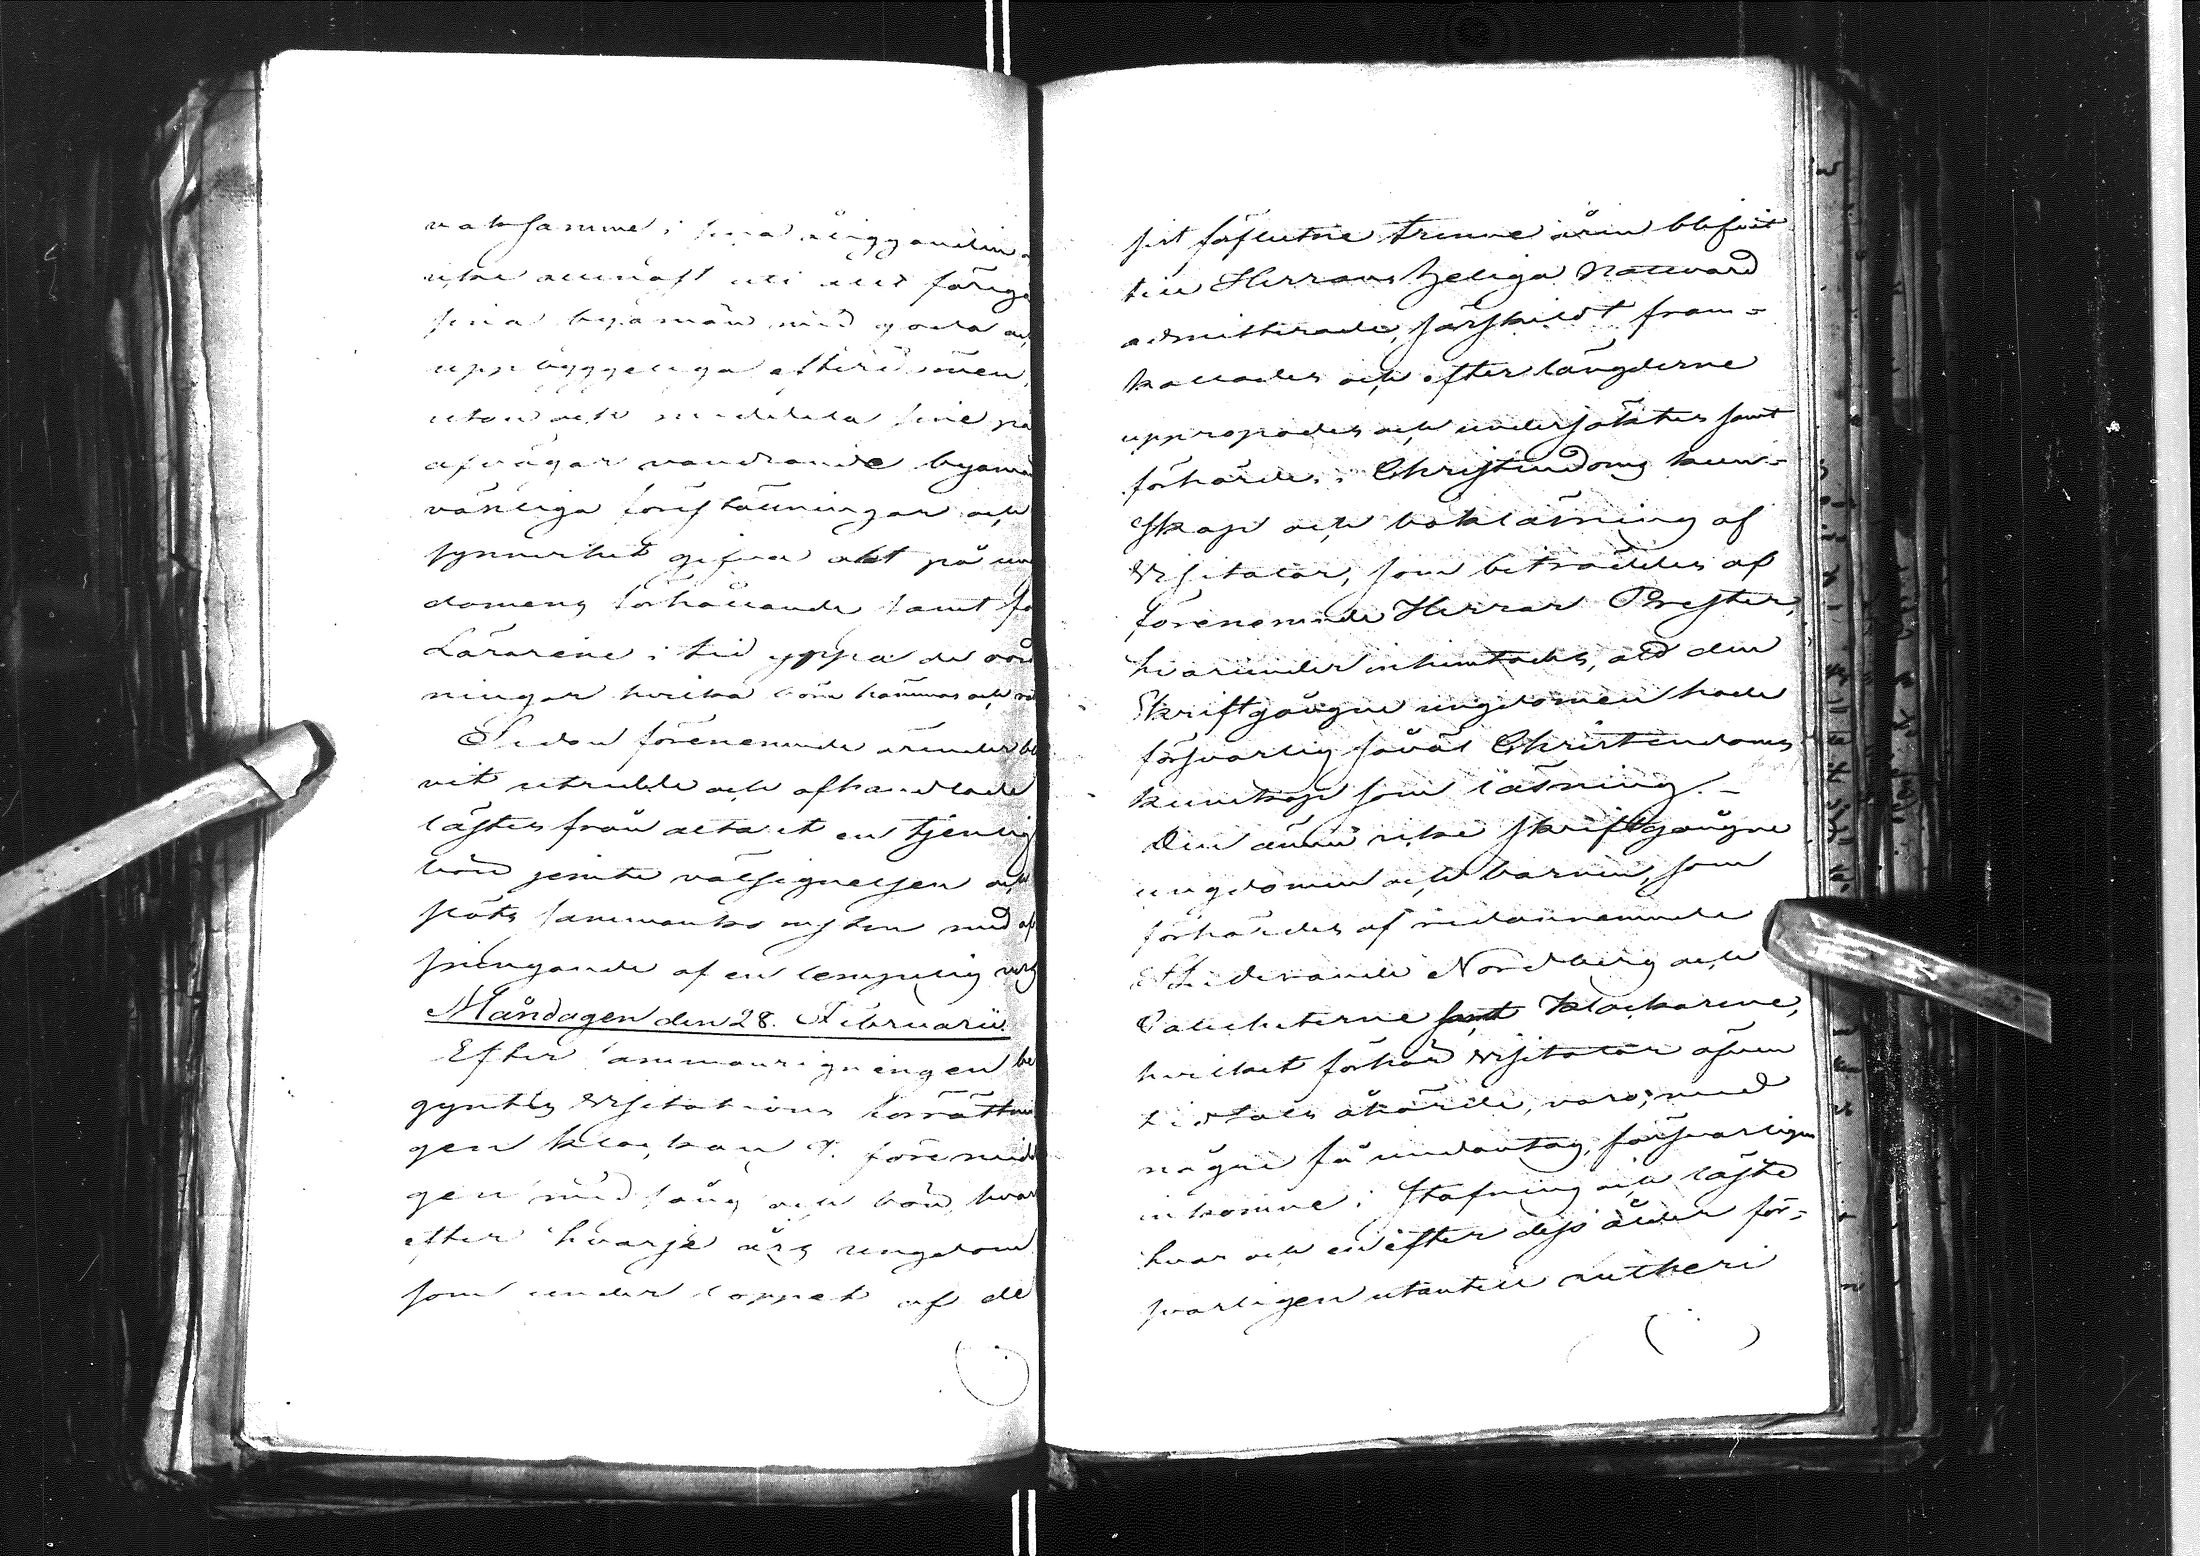 vaksamme i sina åligganden
icke allenast uti att föregå
sina byamän med goda och
uppbyggeliga efterdömen,
utan ock meddela sine på
afvägar vandrande byamän
vänliga föreställningar och
synnerhet gifva akt på ung
domens förhållande samt för
Lärarene i tid yppa de oord
ningar hvilka böra hämmas och
Sedan förenemnde ärender bli
vit utredde och afhandlade
lästes från altaret en tjenlig
bön jemte välsignelsen och
slöts sammankomsten med af
sjungande af en lempelig vers
Måndagen den 28. Februarii
Efter sammanringningen be
gyntes Visitations förrättnin
gen klockan 9. förmidda
gen med sång och bön, hvar
efter hvarje års ungdom
som under loppet af de
sist förflutne trenne åren blifvit
till Herrans heliga Nattvard
admitterade, särskildt fram=
kallades och efter längderne
uppropades och undersöktes samt
förhördes i Christendoms kun=
skap och bokläsning af
Visitator, som biträddes af
förenemnde Herrar Prester,
hvarunder inhemtades, att den
Skriftgångne ungdomen hade
försvarlig såväl Christendoms
kunskap som läsning. _
Den ännu icke skriftgångne
ungdomen och barnen, som
förhördes af medannemnde
Studerande Nordberg och
Catecheterne samt klockarene,
hvilket förhör Visitator äfven
tidtals åhörde, voro, med
någre få undantag, försvarligen
inkomne i stafning och läste
hvar och en efter dess ålder för=
svarligen utantill